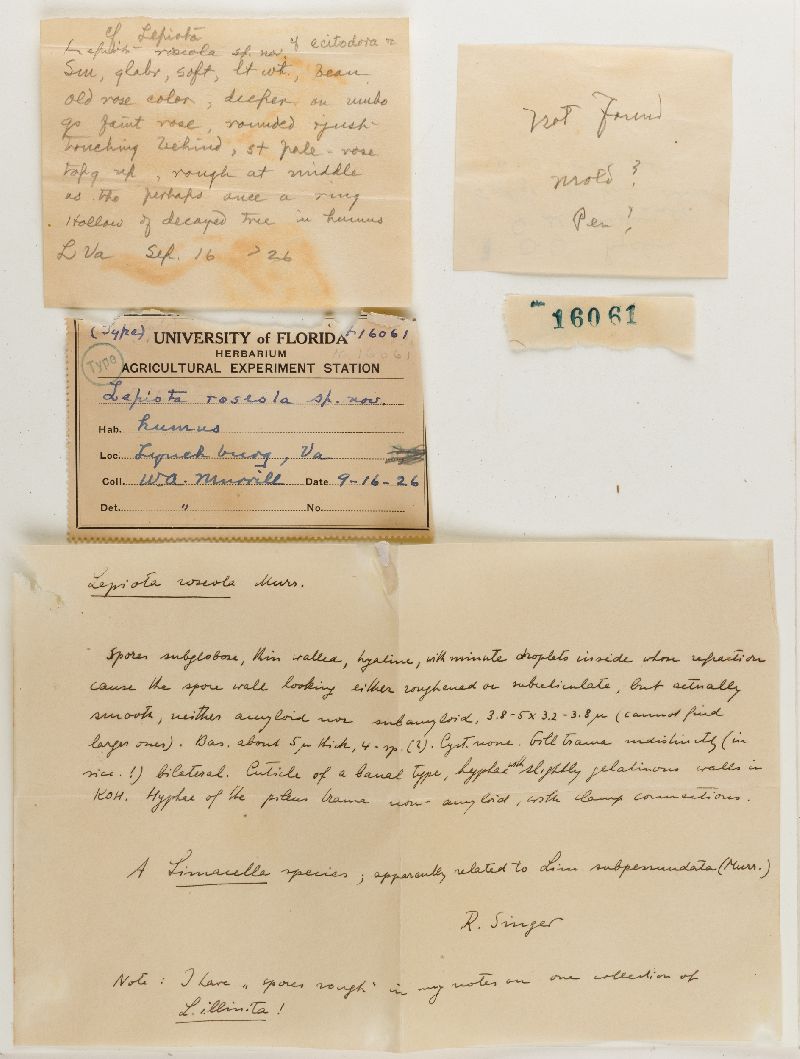 cf Lepiota
Lepiota roseola sp. nov.
Sm, glabr, soft, lt wt,
old rose color, deeper on umbo
gs faint rose, rounded
touching behind, st pale-rose
tap'g up, rough at middle
as tho perhaps once a ring
Hollow of decayed tree in humus
L Va Sep. 16 26
Not Found
Mold?
Pen?
16061
(Type) UNIVERSITY of FLORIDA F16061
HERBARIUM
Type
AGRICULTURAL EXPERIMENT STATION
Lepiota roseola sp. nov.
Hab. humus
Loc. Lynchburg, Va
Coll. W.A. Murrill Date 9-16-26
Det. " No.
Lepiota roseola Murr.
Spores subglobose, thin walled, hyaline, with minute droplets inside whose refraction
cause the spore wall looking either roughened or subreticulate, but actually
smooth, neither amyloid nor subamyloid, 3.8-5 x 3.2-3.8 µ (cannot find
larger ones). Bas. about 5 µ thick, 4-sp. (2). Cyst. none. Gill trama indistinctly (in
sicc.!) bilateral. Cuticle of a banal type, hyphae with slightly gelatinous walls in
KOH. Hyphae of the pileus trama non-amyloid, with clamp connections.
A Limacella species; apparently related to Lim subpessundata (Murr.)
R. Singer
Note: I have „spores rough" in my notes on one collection of
L. illinita!